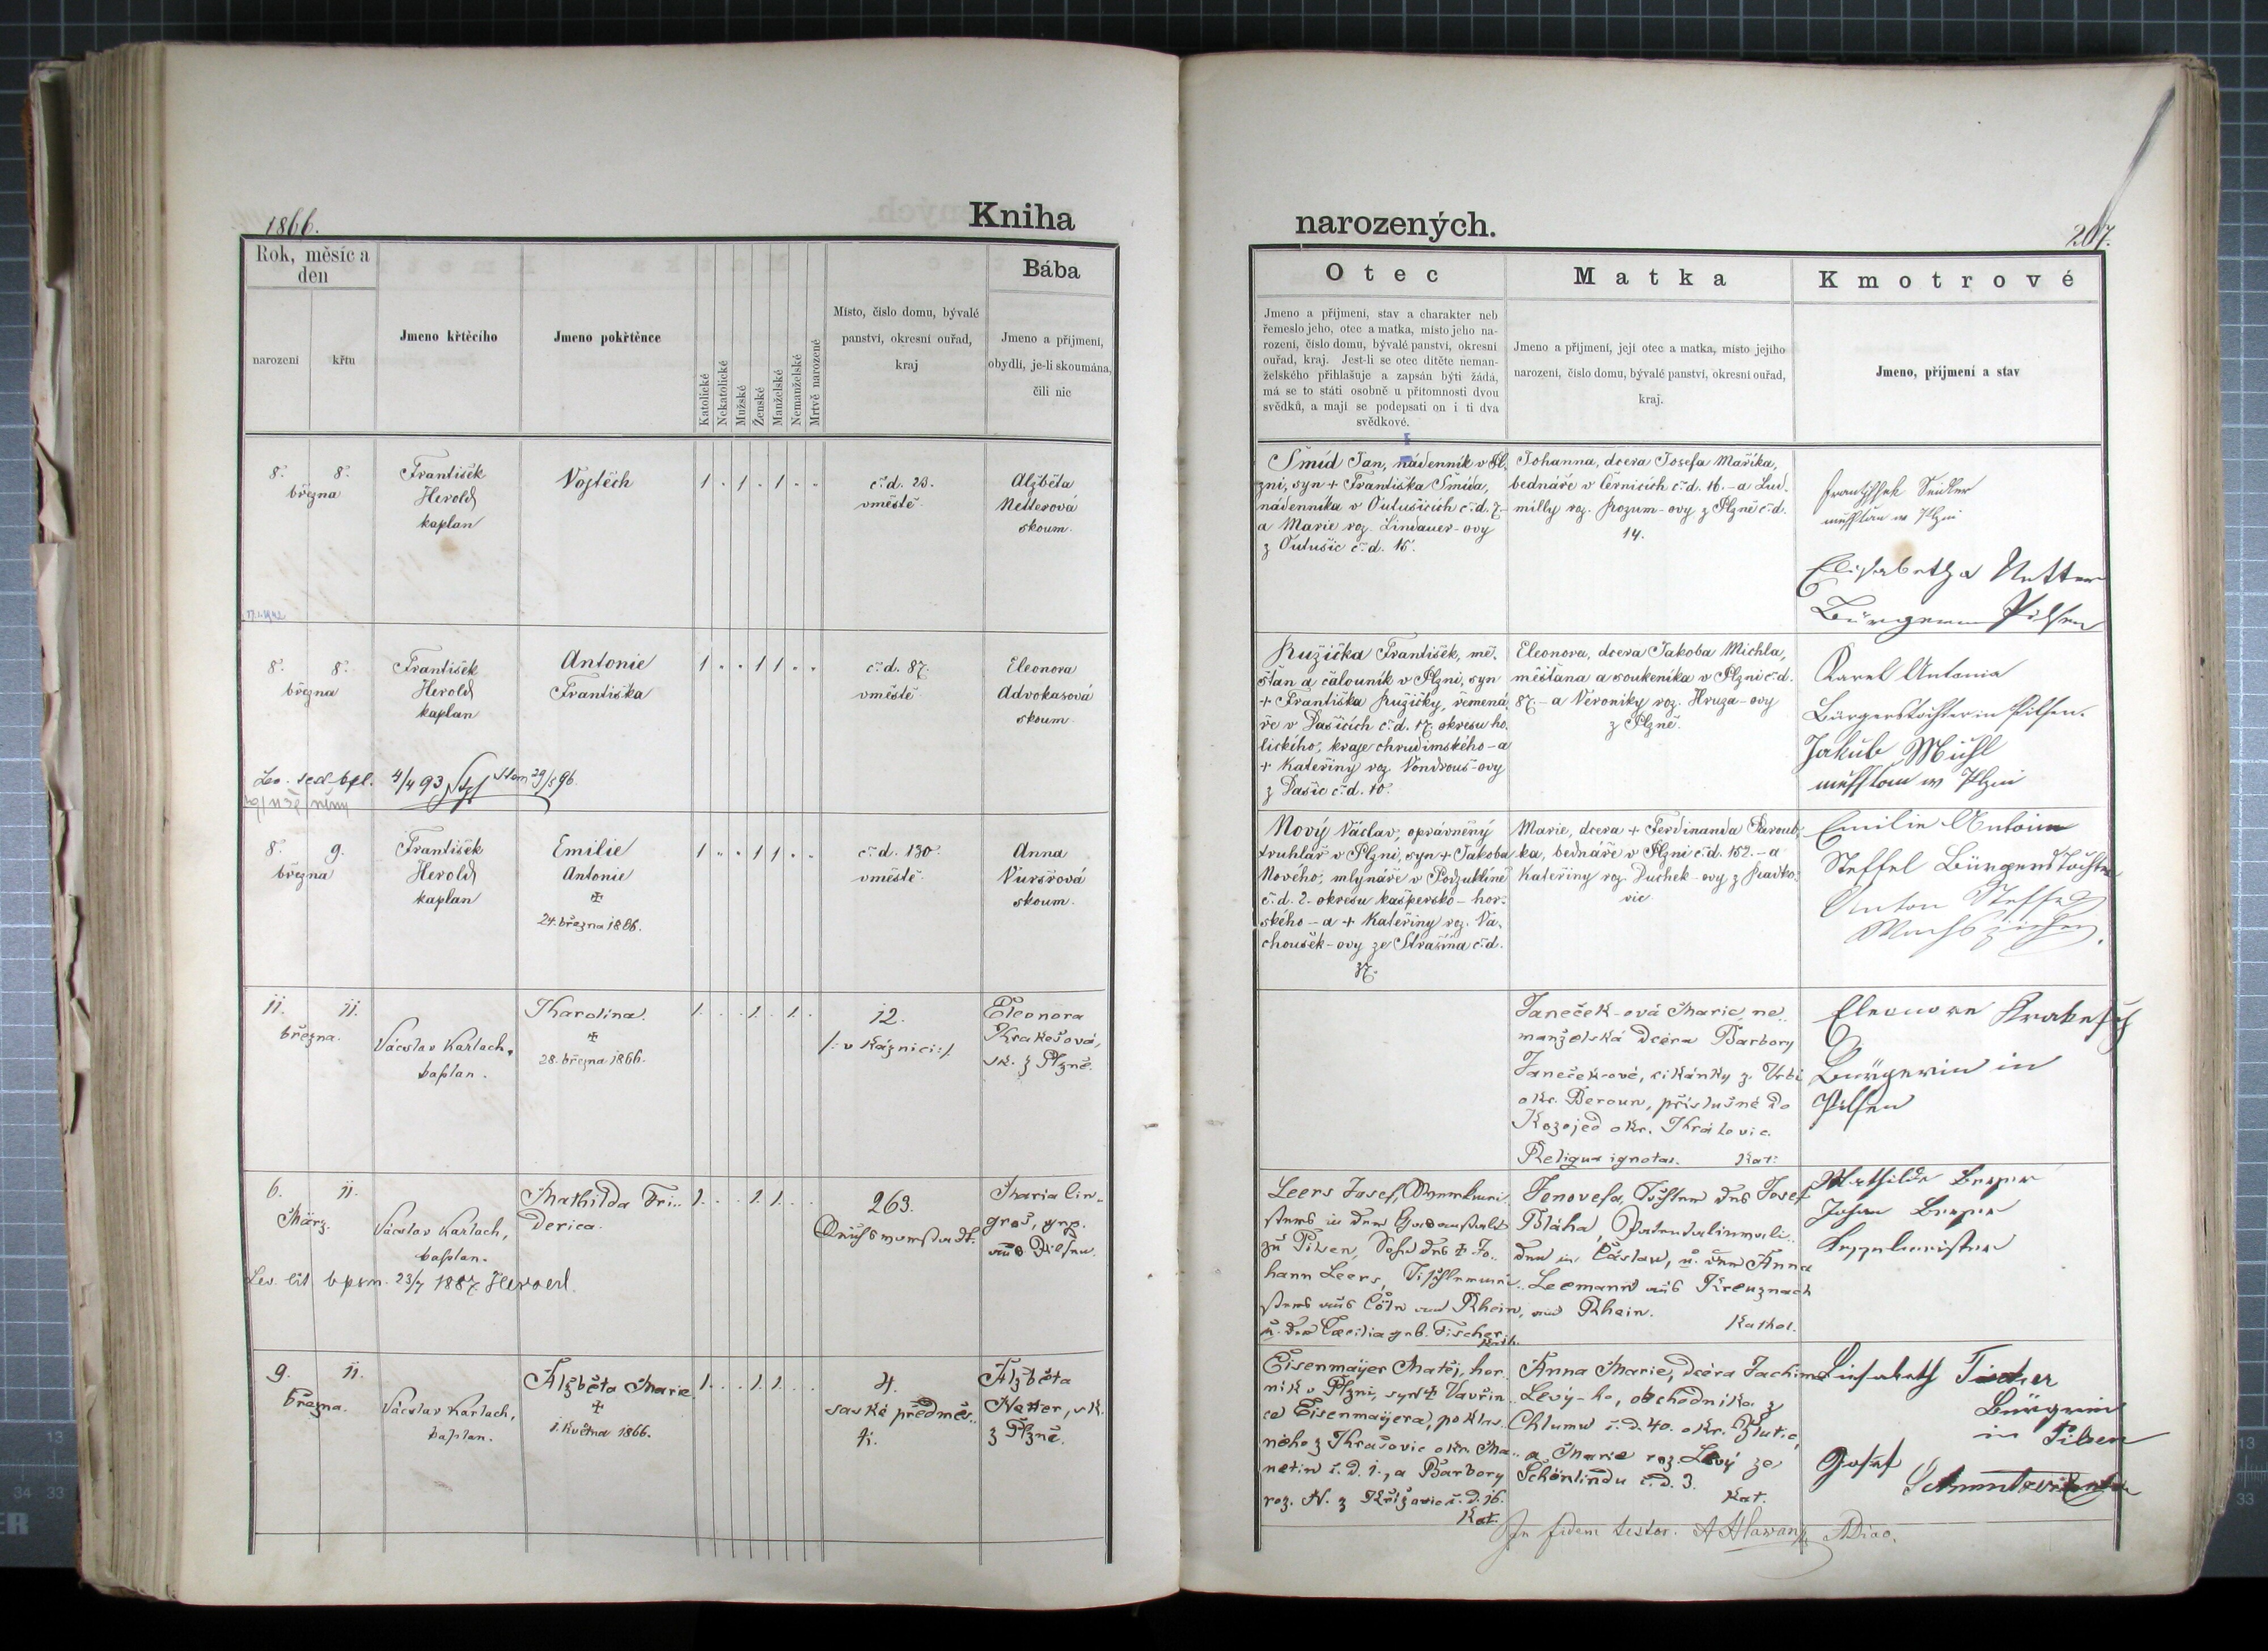 1866.
Kniha
narozených.
207.
Rok, měsíc a
den
narození
křtu
Jmeno křtěcího
Jmeno pokřtěnce
Katolické
Nekatolické
Mužské
Ženské
Manželské
Nemanželské
Mrtvě narozené
Místo, číslo domu, bývalé
panství, okresní ouřad,
kraj
Bába
Jmeno a příjmení,
obydlí, je-li skoumána,
čili nic
Otec
Jmeno a příjmení, stav a charakter neb
řemeslo jeho, otec a matka, místo jeho na-
rození, číslo domu, bývalé panství, okresní
ouřad, kraj. Jest-li se otec dítěte neman-
želského přihlašuje a zapsán býti žádá,
má se to státi osobně u přítomnosti dvou
svědků, a mají se podepsati on i ti dva
svědkové.
Matka
Jmeno a příjmení, její otec a matka, místo jejího
narození, číslo domu, bývalé panství, okresní ouřad,
kraj.
Kmotrové
Jmeno, příjmení a stav
8. 8.
března
František
Herold
kaplan
Vojtěch
1 . 1 . 1 . .
č.d. 23.
vměstě.
Alžběta
Netterová
skoum.
Šmíd Jan, nádenník v Pl.
zni, syn + Františka Šmída,
nádenníka v Outušicích č.d. 7.-
a Marie roz. Lindauer-ovy
z Outušic č.d. 15.
Johanna, dcera Josefa Maříka,
bednáře v Černicích č.d. 16.- a Lud-
milly roz. Rozum-ovy z Plzně č.d.
14.
Elisabetha Netter
Bürgerin Pilsen
8. 8.
března
František
Herold
kaplan
Antonie
Františka
1 . . 1 1 . .
č.d. 87.
vměstě.
Eleonora
Advokasová
skoum.
4/4 93
29/5 96.
Ružička František, mě-
šťan a čalouník v Plzni, syn
+ Františka Ružičky, řemená-
ře v Dašicích č.d. 17. okresu ho-
lického, kraje chrudimského - a
+ Kateřiny roz. Vondrouš-ovy
z Dašic č.d. 10.
Eleonora, dcera Jakoba Michla,
měšťana a soukeníka v Plzni č.d.
87.- a Veroniky roz. Hruza-ovy
z Plzně.
Karel Antonia
Bürgerstochter in Pilsen.
Jakub Michl
8. 9.
března
František
Herold
kaplan
Emilie
Antonie
+
24. března 1866.
1 . . 1 1 . .
č.d. 130.
vměstě.
Anna
skoum.
Nový Václav, oprávněný
truhlář v Plzni, syn + Jakoba
Nového, mlynáře v Podzuklíně
č.d. 2. okresu kašpersko-hor-
ského - a + Kateřiny roz. Va-
choušek-ovy ze Strašína č.d.
37.
Marie, dcera + Ferdinanda Paroub-
ka, bednáře v Plzni č.d. 152.- a
Kateřiny roz. Duchek-ovy z Radko-
vic.
Emilie Antoine
Steffel Bürgerstochter
Anton Steffel
11. 11.
března.
Václav Karlach,
kaplan.
Karolina.
+
28. března 1866.
1. . . 1. . 1. .
12.
/: v káznici :/
Eleonora
Krakešová,
sk. z Plzně.
Janeček-ová Marie, ne-
manželská dcera Barbory
Janečekrové, cikánky z Vrbi
okr. Beroun, příslušné do
Kozojed okr. Kralovic.
Reliqua ignota. Kat.
Eleonore Krakesch
Bürgerin in
Pilsen
6. 11.
März.
Václav Karlach,
kaplan.
Mathilda Fri-
derica.
1. . . 1. 1. . .
263.
Reichsvorstadt.
Maria Lin-
gros, gep.
aus Pilsen.
23/7 1887 Herold.
Leers Josef, Werkmei-
sters in der Gasanstalt
zu Pilsen, Sohn des + Jo-
hann Leers, Tischlermei-
sters aus Cöln am Rhein,
u. der Caecilia geb. Fischer.
Kath.
Jenovefa, Tochter des Josef
Bláha, Patentalinvali-
den in Cáslau, u. der Anna
Leemann aus Kreuznach
am Rhein.
Kathol.
Mathilde Berger
Johan Berger
9. 11.
března.
Václav Karlach,
kaplan.
Alžběta Marie.
+
1. května 1866.
1. . . 1. 1. . .
4.
saské předměs-
tí.
Alžběta
Netter, sk.
z Plzně.
Eisenmayer Matěj, hor-
ník v Plzni, syn + Vavřin-
ce Eisenmayera, poklas-
ného z Krašovic okr. Ma-
netin č.d. 1., a Barbory
roz. N. z Křižovic č.d. 16.
Kat.
Anna Marie, dcera Jachima
Levý-ho, obchodníka z
Chlumu č.d. 40. okr. Žlutic,
a Marie roz. Levý ze
Schönlindu č.d. 3.
Kat.
Elisabeth
Bürgerin
in Pilsen
Josef
In fidem testor.